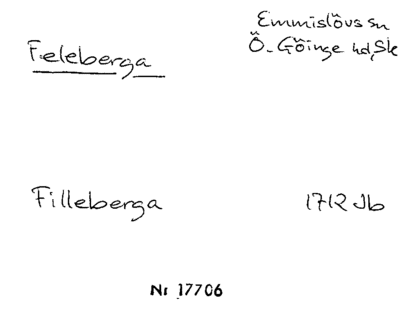 Emmislövs sn
Feleberga
Ö. Göinge hd, Sk
Filleberga 1712 Jb
Nr 17706